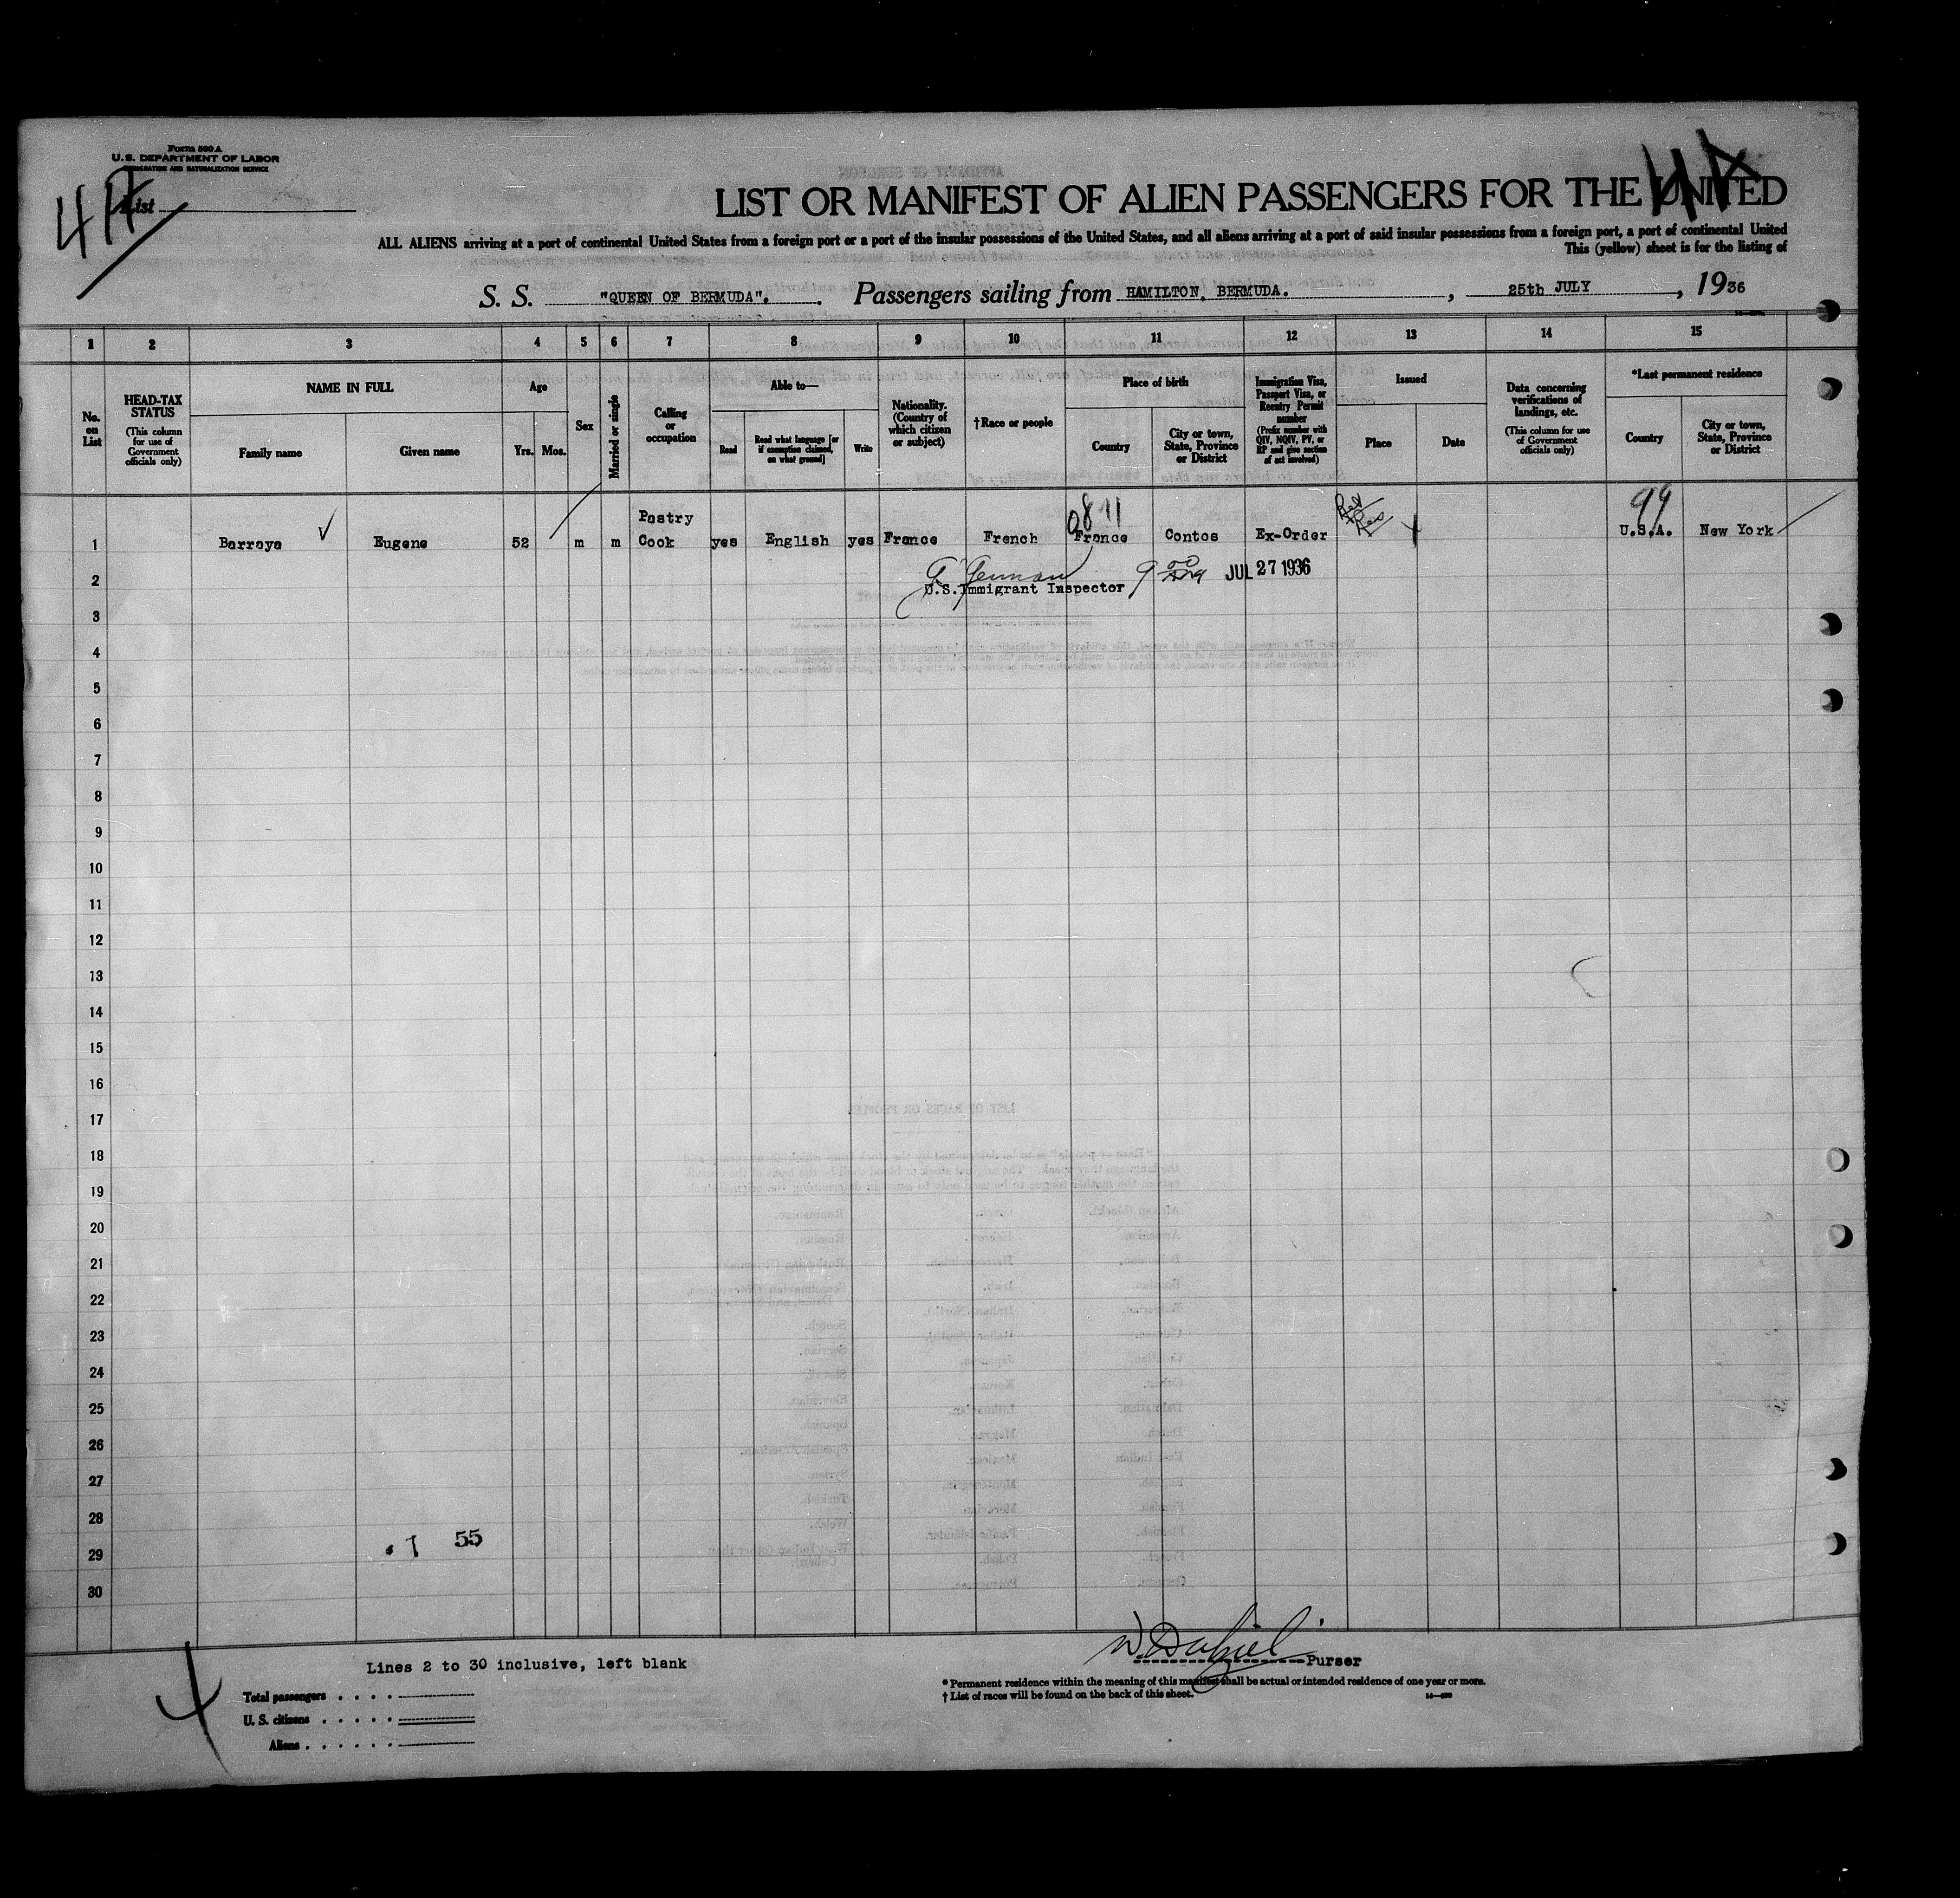 Form 500 A
U.S. DEPARTMENT OF LABOR
IMMIGRATION AND NATURALIZATION SERVICE
List
LIST OR MANIFEST OF ALIEN PASSENGERS FOR THE UNITED
ALL ALIENS arriving at a port of continental United States from a foreign port or a port of the insular possessions of the United States, and all aliens arriving at a port of said insular possessions from a foreign port, a port of continental United
This (yellow) sheet is for the listing of
S. S. "QUEEN OF BERMUDA". Passengers sailing from HAMILTON, BERMUDA. , 25th JULY , 1936
1 2 3 4 5 6 7 8 9 10 11 12 13 14 15
No. on List
HEAD-TAX STATUS
(This column for use of Government officials only)
NAME IN FULL
Family name
Given name
Age
Yrs. Mos.
Sex
Married or single
Calling or occupation
Able to—
Read
Read what language [or if exemption claimed, on what ground]
Write
Nationality. (Country of which citizen or subject)
†Race or people
Place of birth
Country
City or town, State, Province or District
Immigration Visa, Passport Visa, or Reentry Permit number
(Prefix number with QIV, NQIV, PV, or RP and give section of act involved)
Issued
Place
Date
Data concerning verifications of landings, etc.
(This column for use of Government officials only)
*Last permanent residence
Country
City or town, State, Province or District
99
1 Barraya Eugene 52 m m Pastry Cook yes English yes France French France Contos Ex-Order U.S.A. New York
2
U.S.Immigrant Inspector JUL 27 1936
3
4
5
6
7
8
9
10
11
12
13
14
15
16
17
18
19
20
21
22
23
24
25
26
27
28
55
29
30
Lines 2 to 30 inclusive, left blank
Purser
Total passengers
U. S. citizens
Aliens
* Permanent residence within the meaning of this manifest shall be actual or intended residence of one year or more.
† List of races will be found on the back of this sheet.